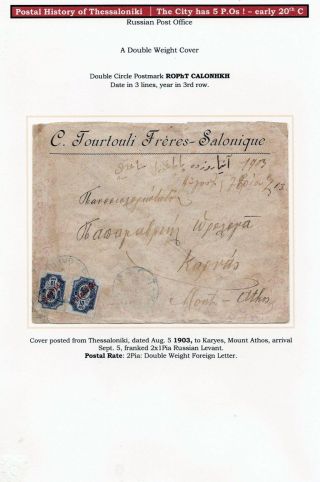 Postal History of Thessaloniki | The City has 5 P.Os ! – early 20th C
Russian Post Office
A Double Weight Cover
Double Circle Postmark ROPhT CALONHKH
Date in 3 lines, year in 3rd row.
C. Tourtouli Frères - Salonique
1903
Καρυάς
Mont - Athos
Cover posted from Thessaloniki, dated Aug. 5 1903, to Karyes, Mount Athos, arrival
Sept. 5, franked 2x1Pia Russian Levant.
Postal Rate: 2Pia: Double Weight Foreign Letter.